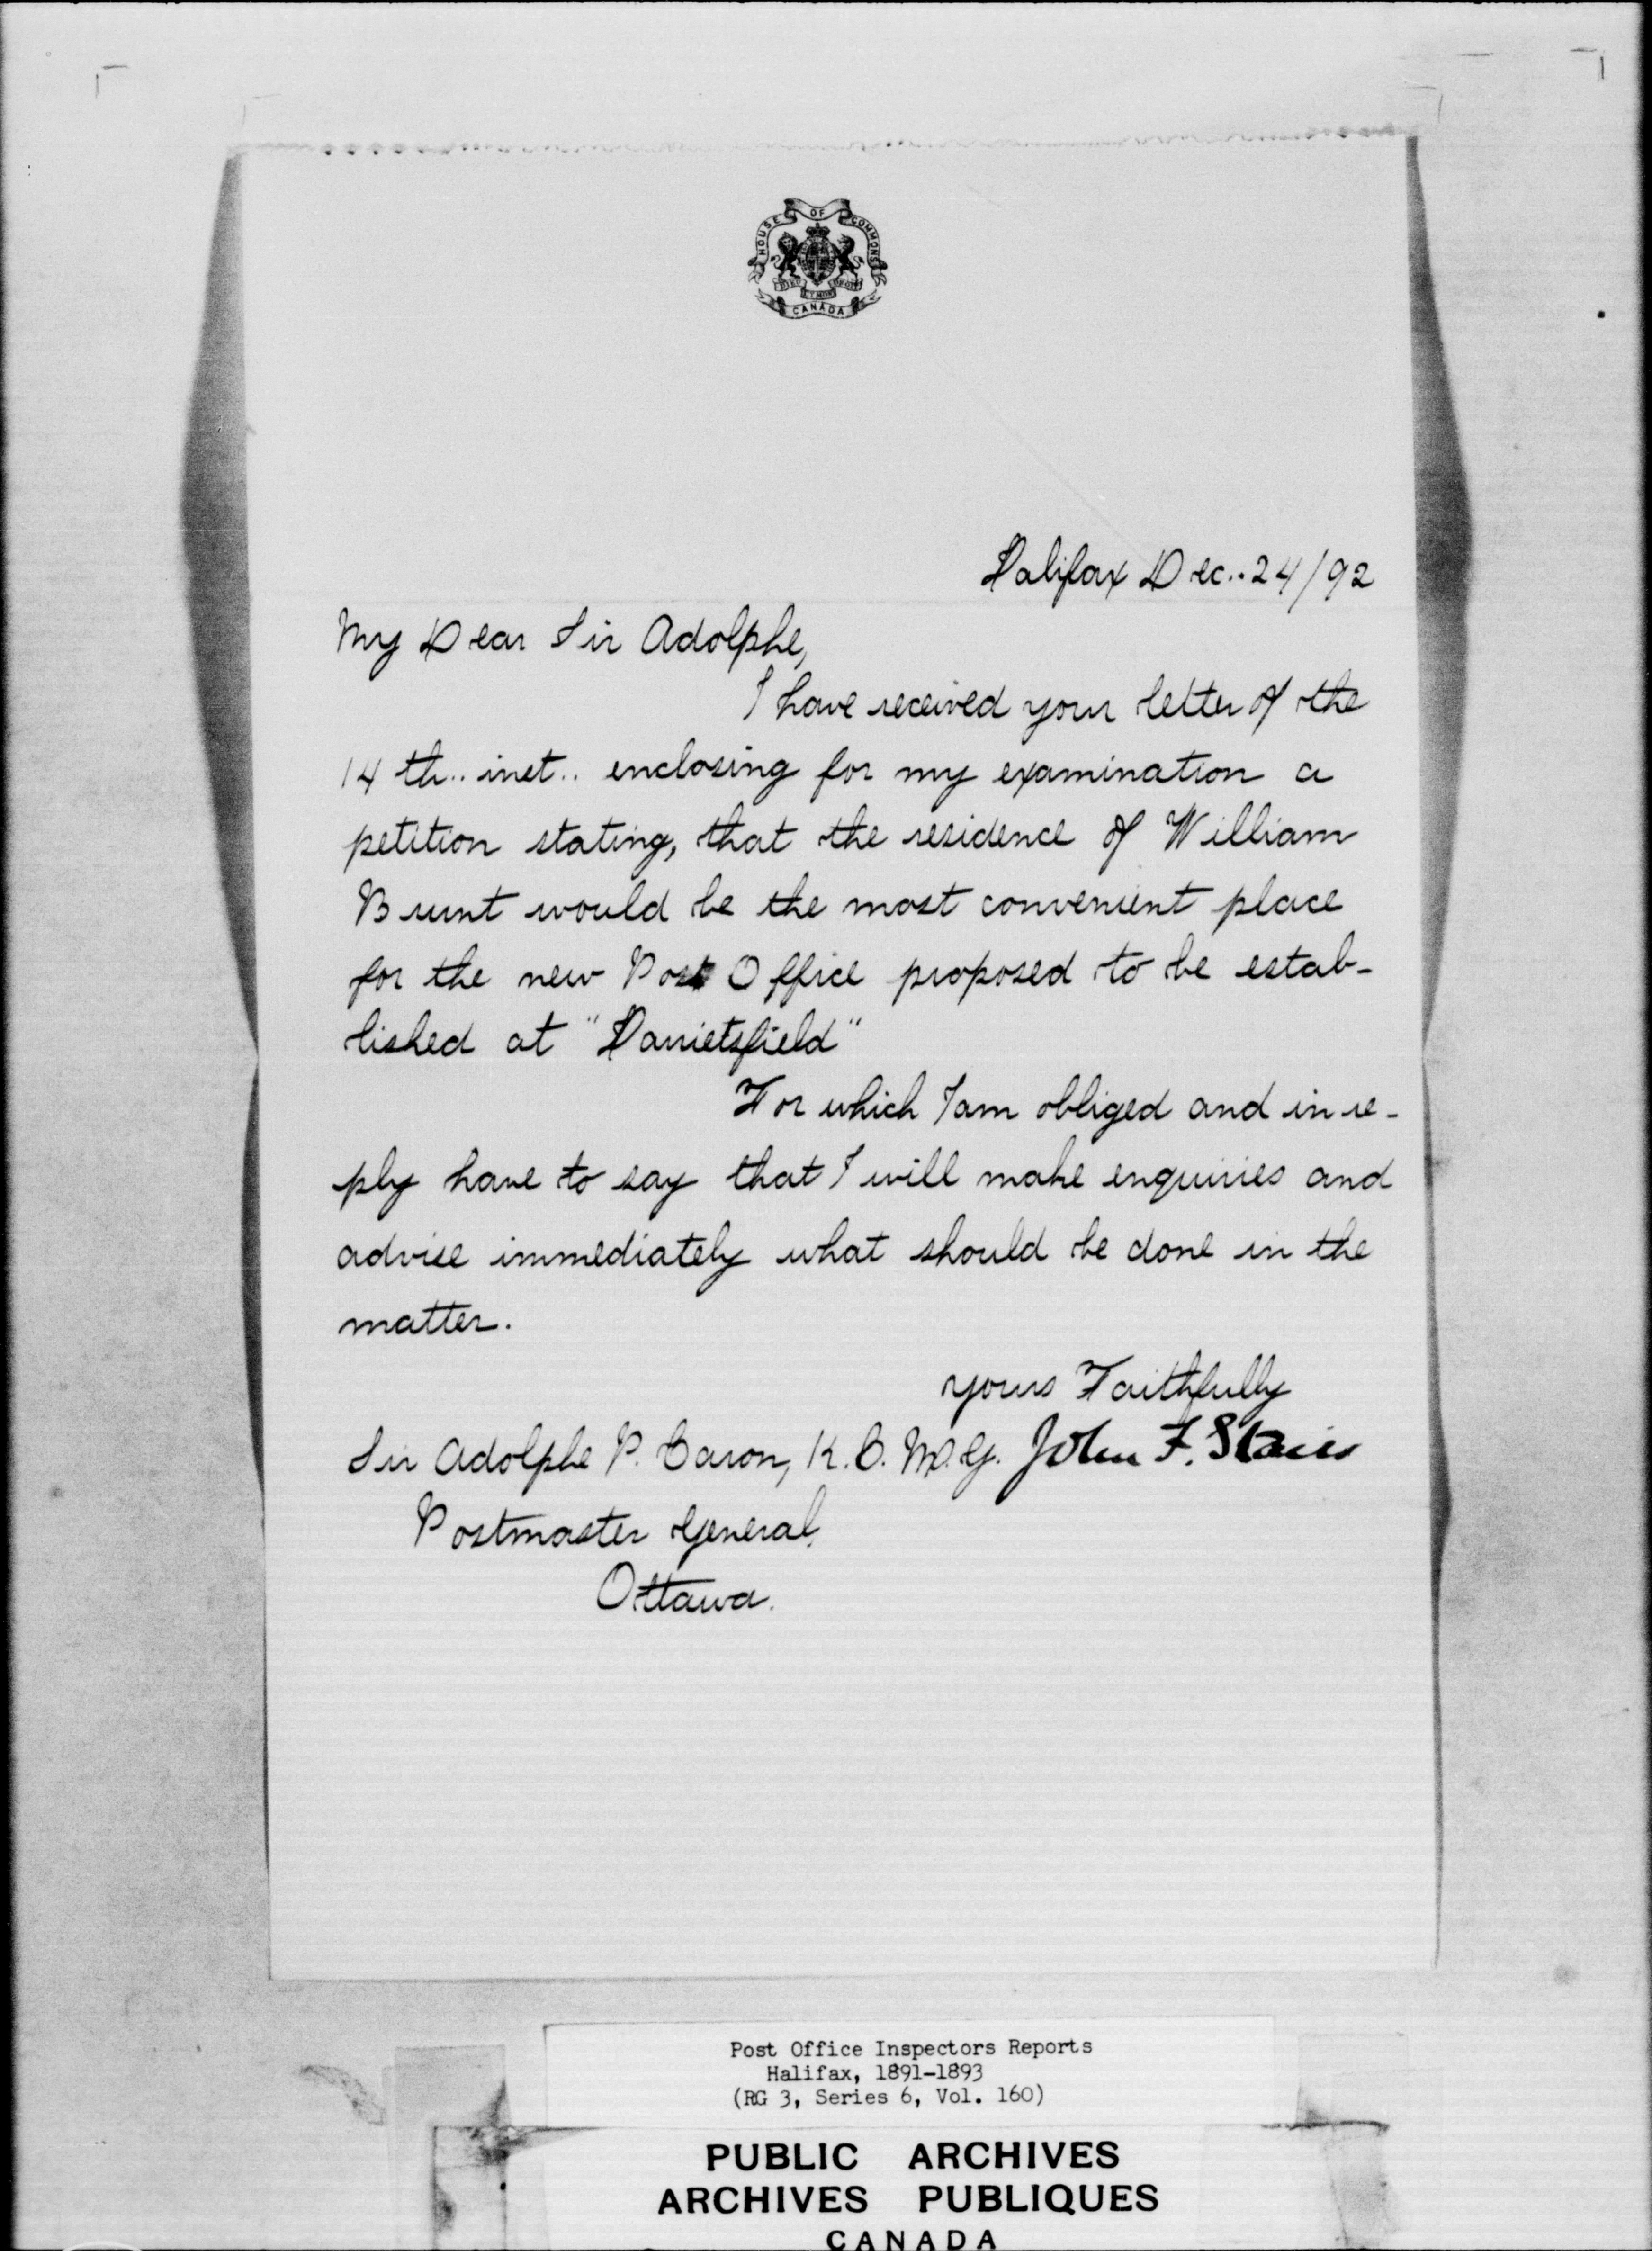 HOUSE OF COMMONS
DIEU ET MON DROIT
CANADA
Halifax Dec.. 24/92
My Dear Sir Adolphe,
I have received your letter of the
14 th.. inst.. enclosing for my examination a
petition stating, that the residence of William
Brunt would be the most convenient place
for the new Post Office proposed to be estab-
lished at "Harrietsfield"
For which I am obliged and in re-
ply have to say that I will make enquiries and
advise immediately what should be done in the
matter.
yours Faithfully
Sir Adolphe P. Caron, K.C.M.G. John F. Stairs
Postmaster General,
Ottawa.
Post Office Inspectors Reports
Halifax, 1891-1893
(RG 3, Series 6, Vol. 160)
PUBLIC ARCHIVES
ARCHIVES PUBLIQUES
CANADA